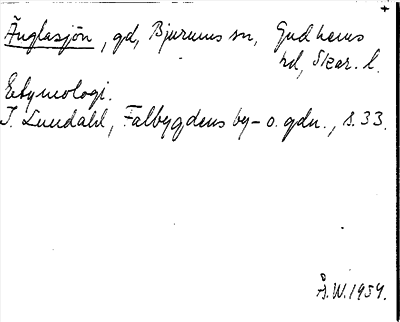 Änglasjön, gd, Bjurums sn, Gudhems
hd, Skar. l.
Etymologi.
I. Lundahl, Falbygdens by- o. gdn., s. 33.
Å.W. 1959.